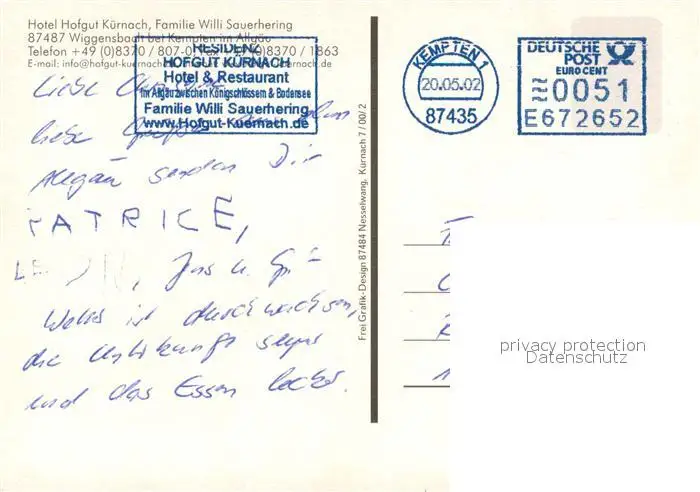 Hotel Hofgut Kürnach, Familie Willi Sauerhering
87487 Wiggensbach bei Kempten im Allgäu
Telefon +49 (0)8370 / 807-0, Fax +49 (0)8370 / 1863
E-mail: info@hofgut-kuernach.de
RESIDENZ
HOFGUT KÜRNACH
Hotel & Restaurant
im Allgäu zwischen Königsschlössern & Bodensee
Familie Willi Sauerhering
www.Hofgut-Kuernach.de
Liebe
liebe Grüße
Allgäu senden Dir
PATRICE,
Jas u.
Wetter ist durchwachsen,
die Unterkunft super
und das Essen lecker.
Frei Grafik-Design 87484 Nesselwang, Kürnach 7/00/2
KEMPTEN 1
20.05.02
87435
DEUTSCHE
POST
EURO CENT
0051
E672652
privacy protection
Datenschutz